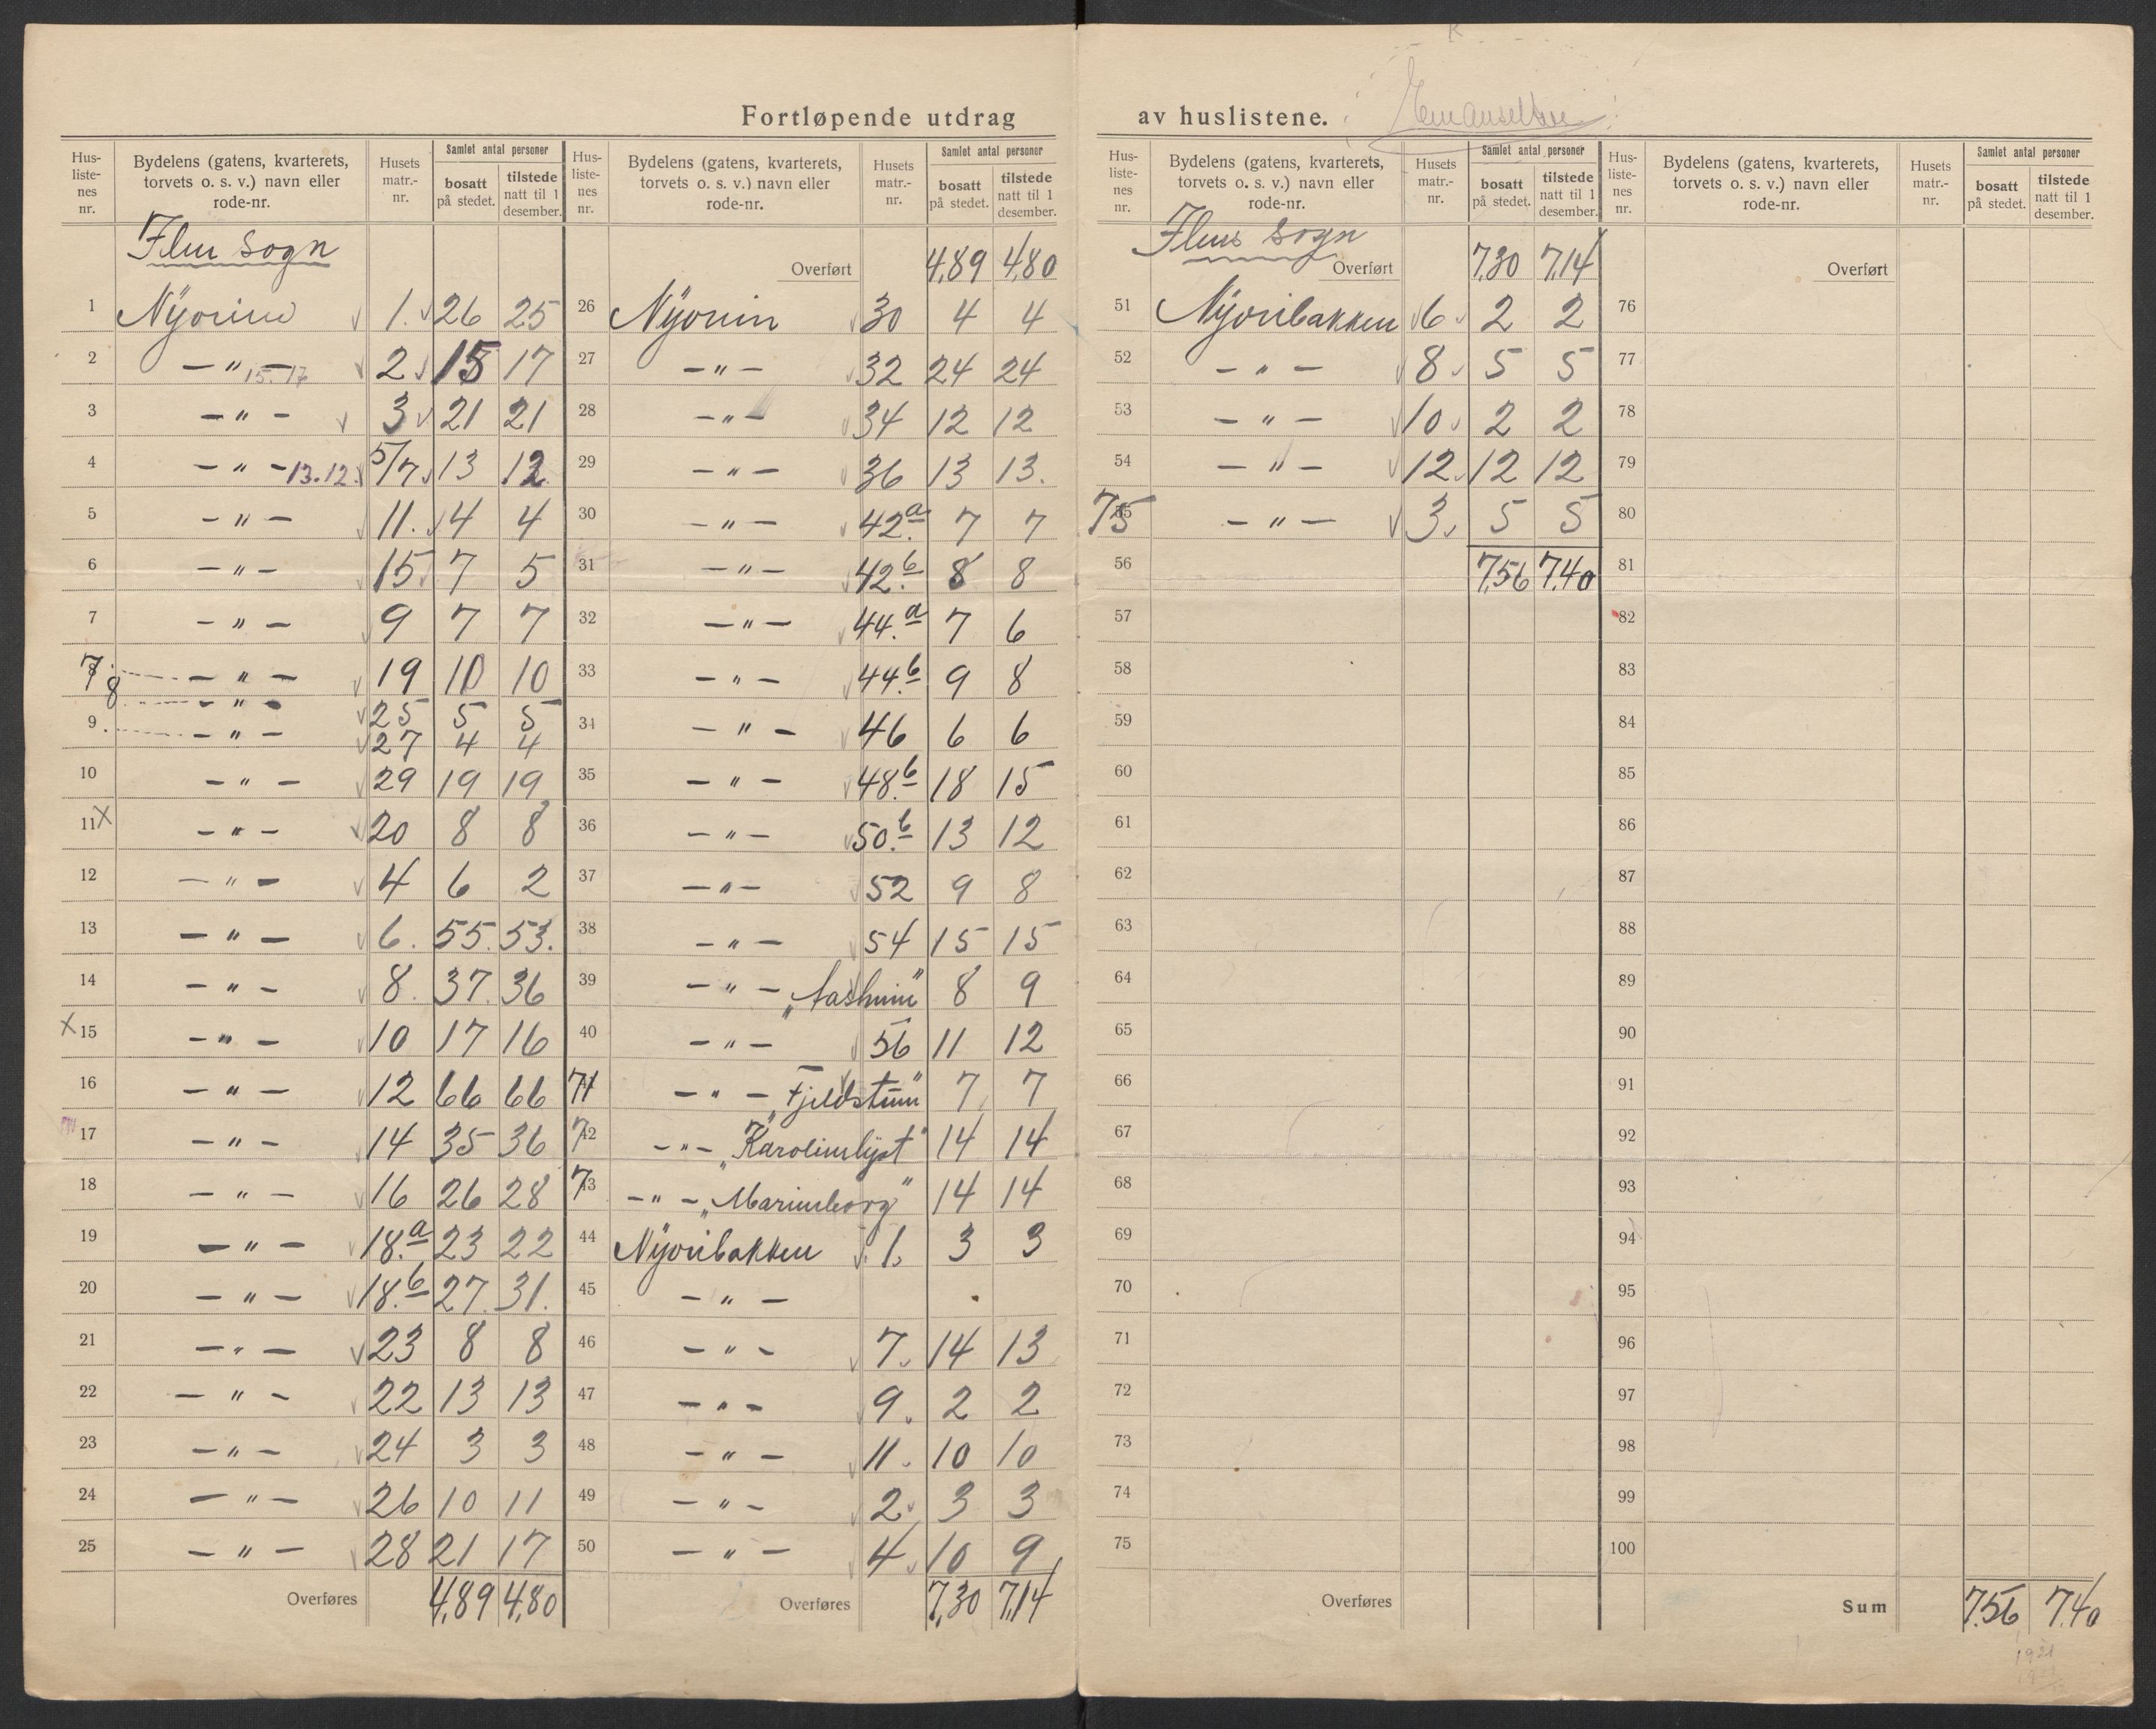 Fortløpende utdrag av huslistene.
Hus-liste-nes nr. Bydelens (gatens, kvarterets, torvets o. s. v.) navn eller rode-nr. Husets matr.-nr. Samlet antal personer bosatt på stedet. tilstede natt til 1 desember.
Sogn
1 1. 26 25
2 — " — 15. 17 2 15 17
3 — " — 3 21 21
4 — " — 13.12. 5/7 13 12
5 — " — 11. 4 4
6 — " — 15 7 5
7 — " — 9 7 7
7 — " — 19 10 10
8 — " — 25 5 5
9 — " — 27 4 4
10 — " — 29 19 19
11 X — " — 20 8 8
12 — " — 4 6 2
13 — " — 6. 55. 53.
14 — " — 8. 37. 36
X 15 — " — 10 17 16
16 — " — 12 66 66
17 — " — 14 35 36
18 — " — 16 26 28
19 — " — 18.a 23 22
20 — " — 18.b 27. 31.
21 — " — 23 8 8
22 — " — 22 13 13
23 — " — 24 3 3
24 — " — 26 10 11
25 — " — 28 21 17
Overføres 4,89 4,80
Hus-liste-nes nr. Bydelens (gatens, kvarterets, torvets o. s. v.) navn eller rode-nr. Husets matr.-nr. Samlet antal personer bosatt på stedet. tilstede natt til 1 desember.
Overført 4,89 4,80
26 30 4 4
27 — " — 32 24 24
28 — " — 34 12 12
29 — " — 36 13 13.
30 — " — 42.a 7 7
31 — " — 42.b 8 8
32 — " — 44.a 7 6
33 — " — 44.b 9 8
34 — " — 46 6 6
35 — " — 48.b 18 15
36 — " — 50.b 13 12
37 — " — 52 9 8
38 — " — 54 15 15
39 — " — 8 9
40 — " — 56 11 12
41 — " — 7 7
42 — " — 14 14
43 — " — 14 14
44 1. 3 3
45 — " —
46 — " — 7. 14 13
47 — " — 9. 2 2
48 — " — 11. 10 10
49 — " — 2. 3 3
50 — " — 4. 10 9
Overføres 7,30 7,14
Hus-liste-nes nr. Bydelens (gatens, kvarterets, torvets o. s. v.) navn eller rode-nr. Husets matr.-nr. Samlet antal personer bosatt på stedet. tilstede natt til 1 desember.
Sogn
Overført 7,30 7,14
51 Nyoribakken 6 2 2
52 — " — 8 5 5
53 — " — 10 2 2
54 — " — 12. 12 12
75 — " — 3. 5 5
56 7,56 7,40
57
58
59
60
61
62
63
64
65
66
67
68
69
70
71
72
73
74
75
Overføres
Hus-liste-nes nr. Bydelens (gatens, kvarterets, torvets o. s. v.) navn eller rode-nr. Husets matr.-nr. Samlet antal personer bosatt på stedet. tilstede natt til 1 desember.
Overført
76
77
78
79
80
81
82
83
84
85
86
87
88
89
90
91
92
93
94
95
96
97
98
99
100
Sum 7.56 7.40